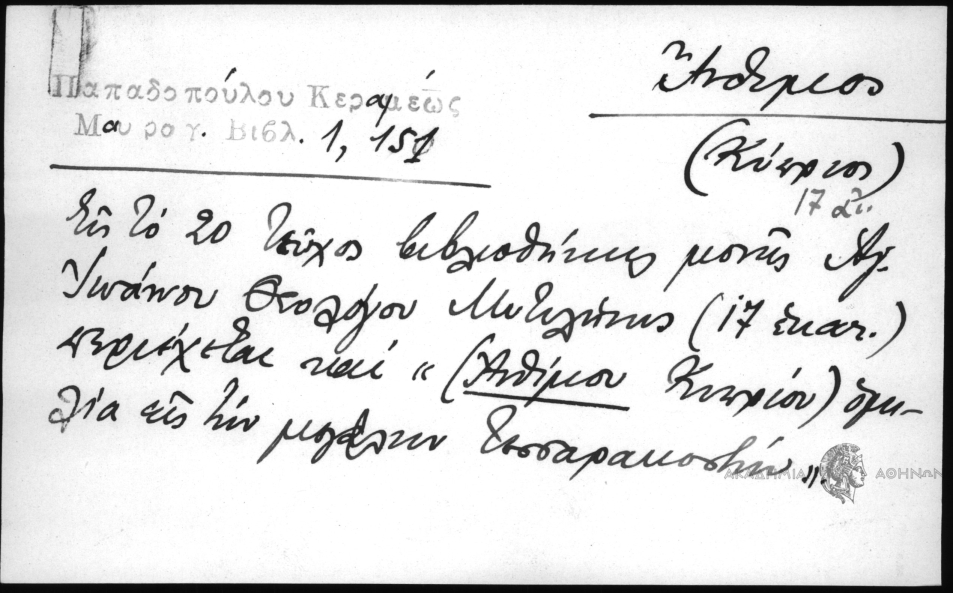 Παπαδοπούλου Κεραμέως
Μαυρογ. Βιβλ. 1, 151
Ἄνθιμος
(Κύπριος)
17 αἰ.
Εἰς τό 20 τεῦχος βιβλιοθήκης μονῆς Ἁγ.
Ἰωάννου Θεολόγου Μυτιλήνης (17 ἑκατ.)
περιέχεται καί "(Ἀνθίμου Κυπρίου) ὁμι-
λία εἰς τήν μεγάλην Τεσσαρακοστήν".
ΑΚΑΔΗΜΙΑ ΑΘΗΝΩΝ